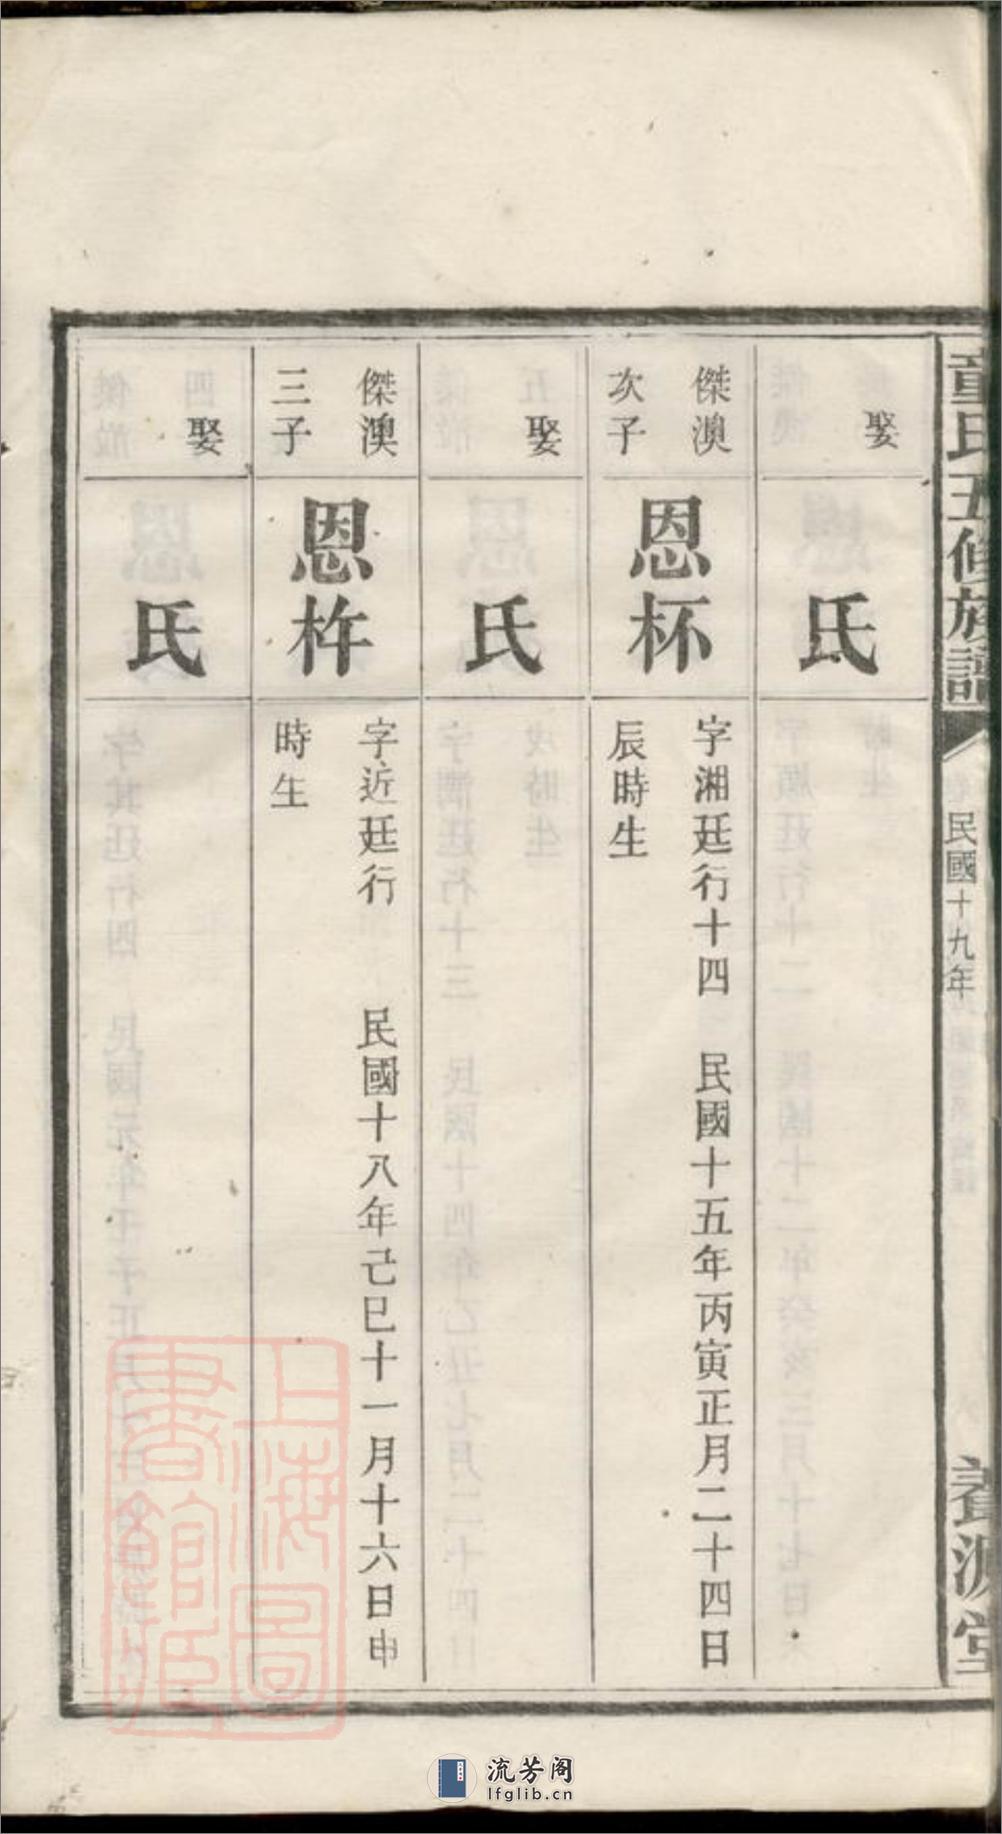 童氏五修族譜
民國十九年
養源堂
娶
氏
傑澳
次子
恩杯
字湘廷行十四 民國十五年丙寅正月二十四日
辰時生
娶
氏
傑澳
三子
恩杵
字近廷行 民國十八年己巳十一月十六日申
時生
娶
氏
上海圖
書館藏
流芳阁
lfglib.cn